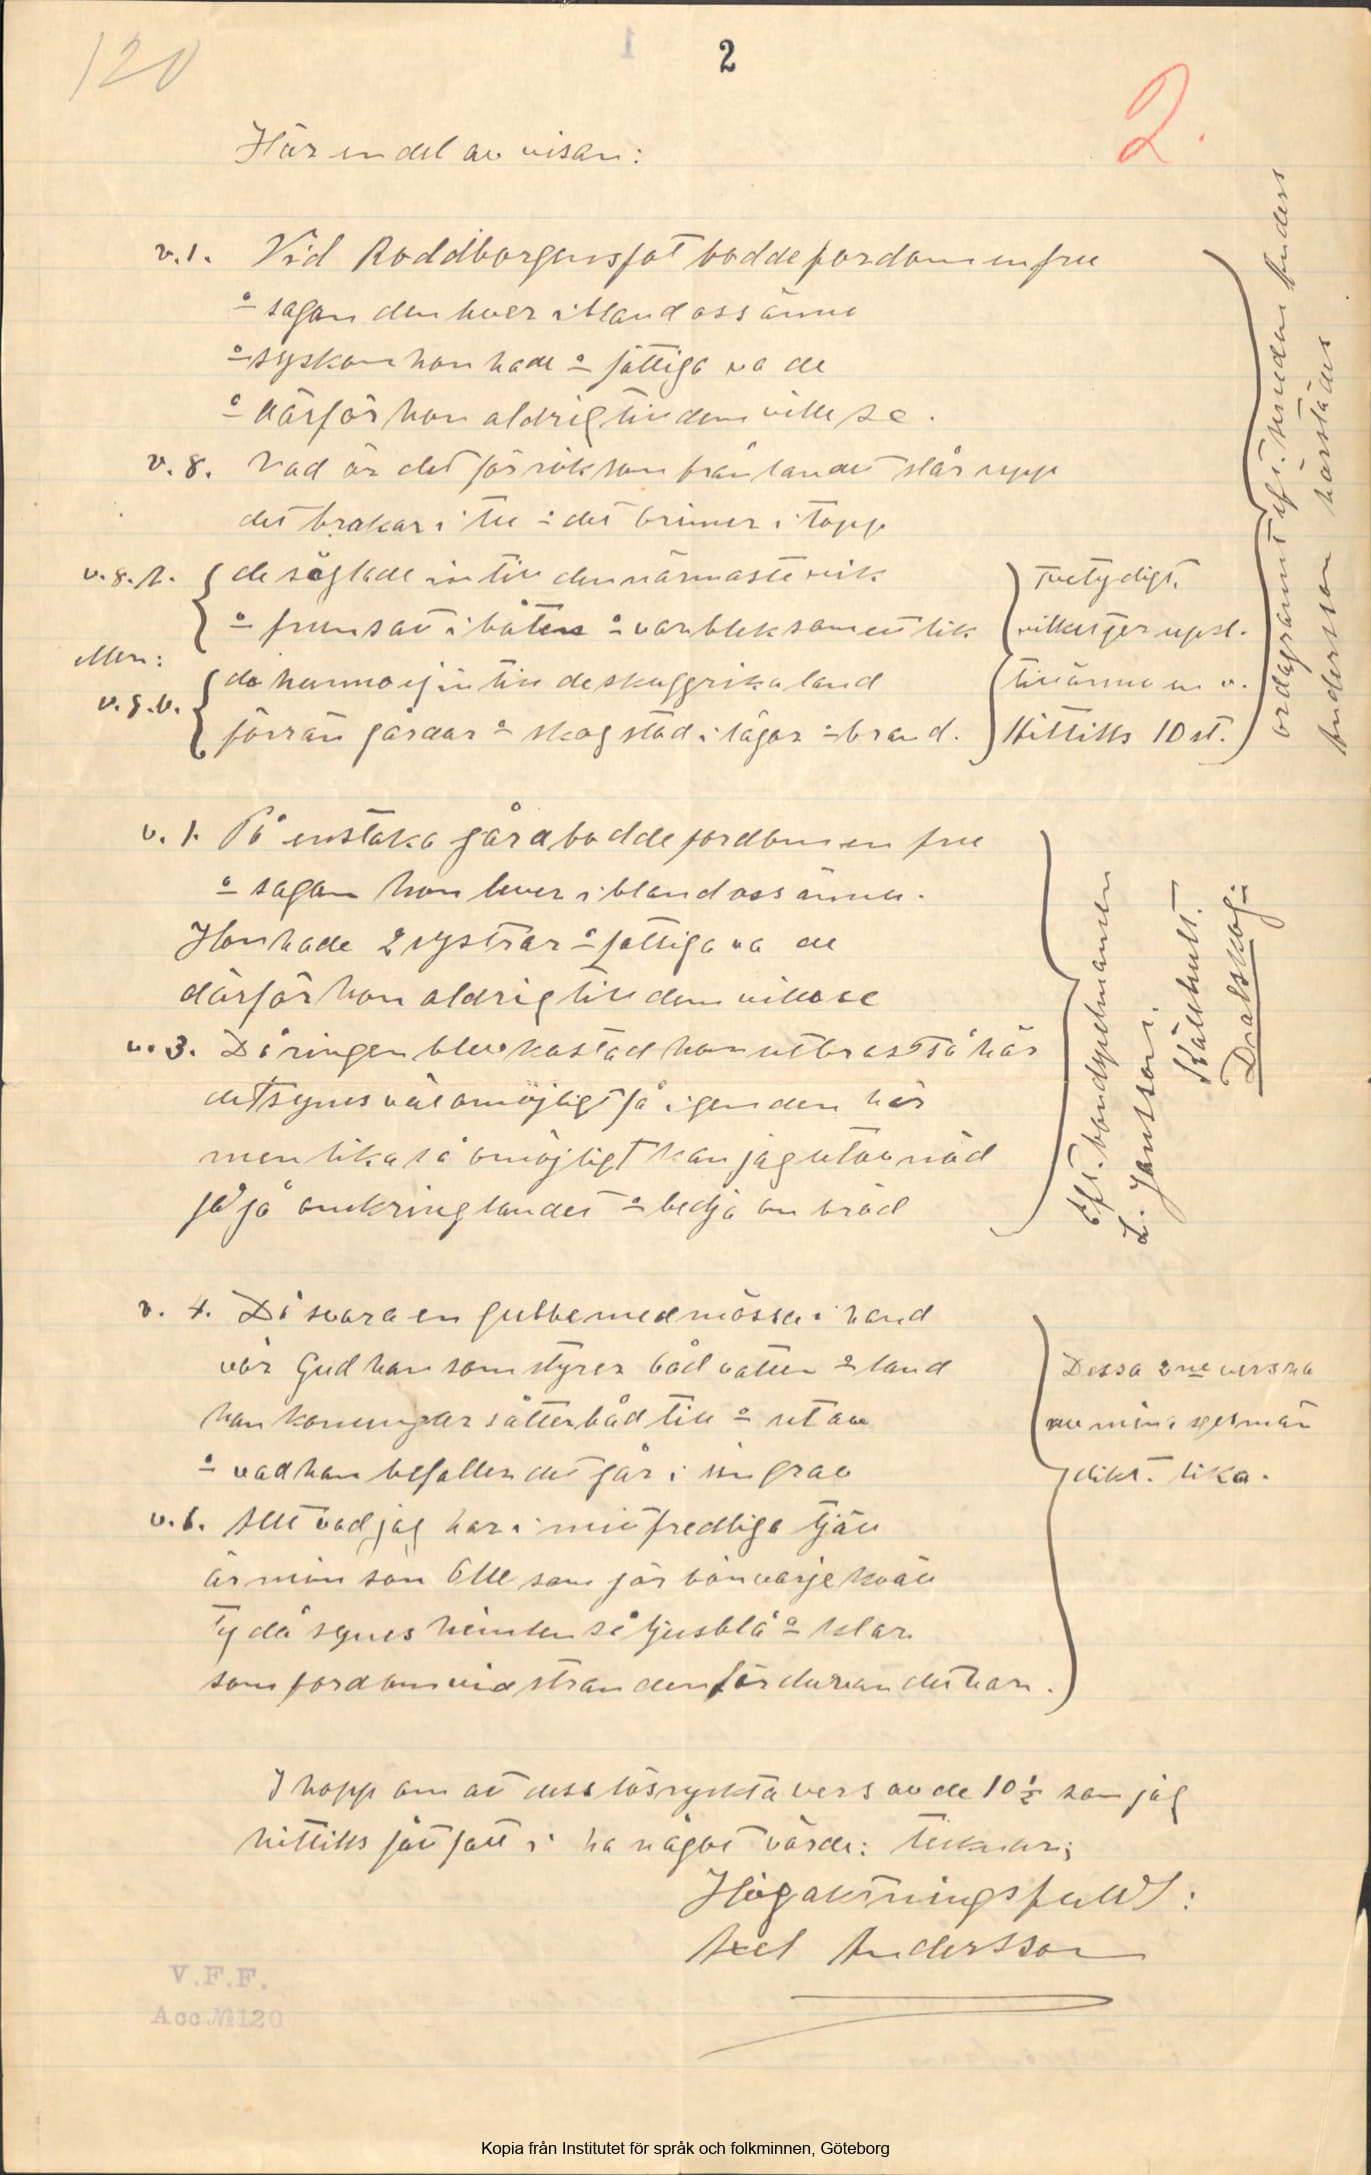 120
2
2.
Här en del av visan:
v.1. Vid Roddborgens fot bodde fordom en fru
å sagan den lever ibland oss ännu
å syskon hon hade å fattiga va de
å därför hon aldrig till dem ville se.
v.8. Vad är det för rök som från landet slår upp
det brakar i trä å det brinner i topp
v.8.A. de seglade in till den närmaste vik
å frun satt i båten å var blek som ett lik
eller:
v.8.b. de hunno ej in till de skuggrika land
förrän gårdar å skog stod i lågor å brand.
tvetydigt.
vilket ger uppsl.
till ännu en v.
Hittills 10 st.
ordagrannt eft. smeden Anders
Andersson härstädes
v. 1. På enstaka gård bodde fordom en fru
å sagan hon lever ibland oss ännu.
Hon hade 2 systrar å fattiga va de
därför hon aldrig till dem ville se
v.3. Då ringen blev kastad hon utbrast så här
det synes väl omöjligt få igen den här
men lika så omöjligt kan jag utav nöd
få gå omkring landet å bedja om bröd
Eft. bondspelmannen
L. Jansson.
Källhult.
Dalskog.
v. 4. Då svara en gubbe med mössa i hand
vår Gud han som styrer båd vatten å land
han konungar sätter båd till å utav
å vad han befaller det går i sin grav
v.6. Allt vad jag har i mitt fredliga tjäll
är min son Olle som gör bön varje kväll
Ty då synes himlen så ljusblå å klar
som fordom vid stranden för
Dessa 2ne verserna
av mina gesmän
dikt. lika.
I hopp om att dess lösryckta vers av de 10½ som jag
hittills fåt fatt i ha något värde: tecknar;
Högaktningsfullt:
Axel Andersson
V.F.F.
Acc № 120
Kopia från Institutet för språk och folkminnen, Göteborg